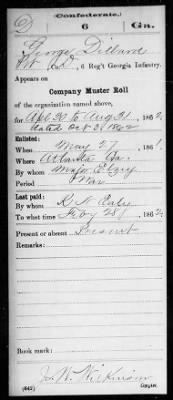 (Confederate.)
D 6 Ga.
George Dillard
Pvt Co. D, 6 Reg't Georgia Infantry.
Appears on
Company Muster Roll
of the organization named above,
for Apl 30 to Aug 31, 1862
dated Oct 31 1862
Enlisted:
When May 27, 1861
Where Atlanta Ga.
By whom Major
Period War
Last paid:
By whom K. N.
To what time Feby 28, 1862
Present or absent Present
Remarks:
Book mark:
J. W. Wilkinson
(642) Copyist.